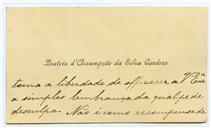 Beatriz d'Assumpção da Silva Cardoso
toma a liberdade de offerecer a V. Exª
a simples lembrança da qual pede
desculpa. Não é como recompensa de